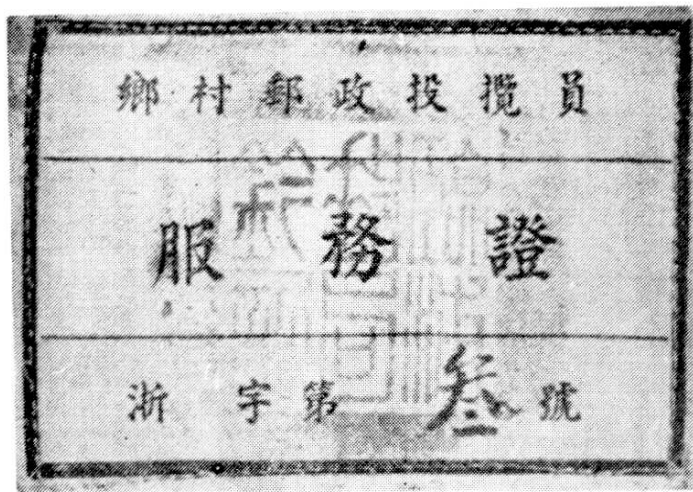 鄉村郵政投攬員
服務證
浙字第叁號